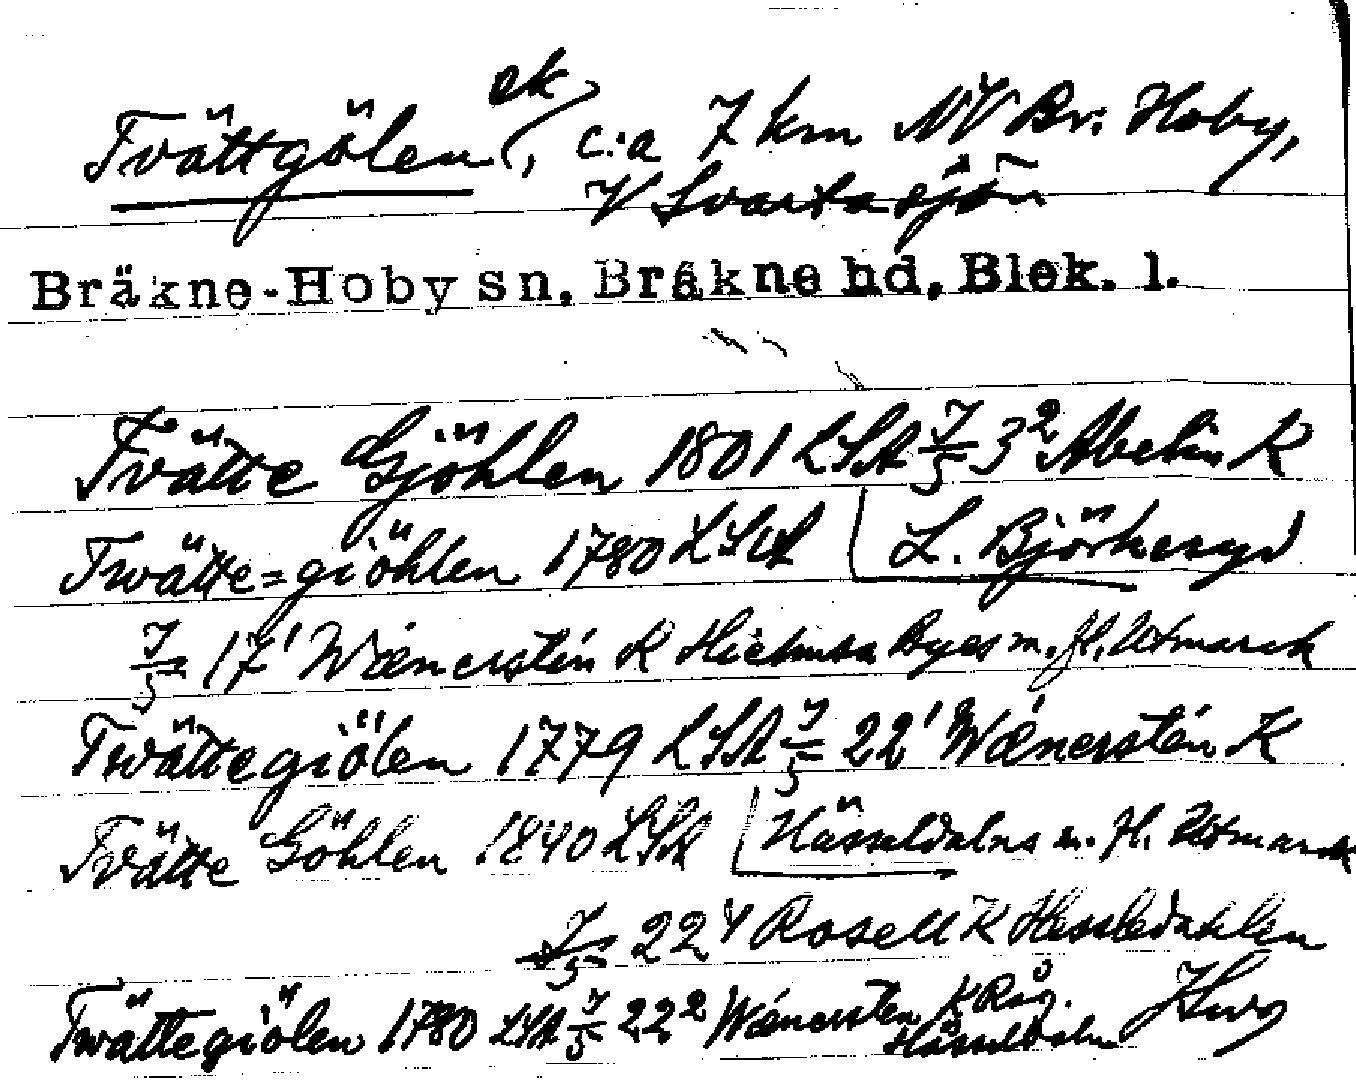 Tvättgölen ek, c:a 7 km NV Br. Hoby,
V Svartasjön
Bräkne-Hoby sn, Bräkne hd, Blek. l.
Tvätte Gjöhlen 1801 LSA 7/5 3² Abelin K
Twätte=giöhlen 1780 LSA L. Björkeryd
7/5 17¹ Wænerstén K Byes m. fl. Utmarck
Twättegiölen 1779 LSA 7/5 22¹ Wænerstén K
Tvätte Göhlen 1840 LSA Hässeldalns m. fl. Utmarck
7/5 22⁴ Rosell K Hessledahlen
Twättegiölen 1780 LSA 7/5 22² Wænersten K Råg. Hässeldaln